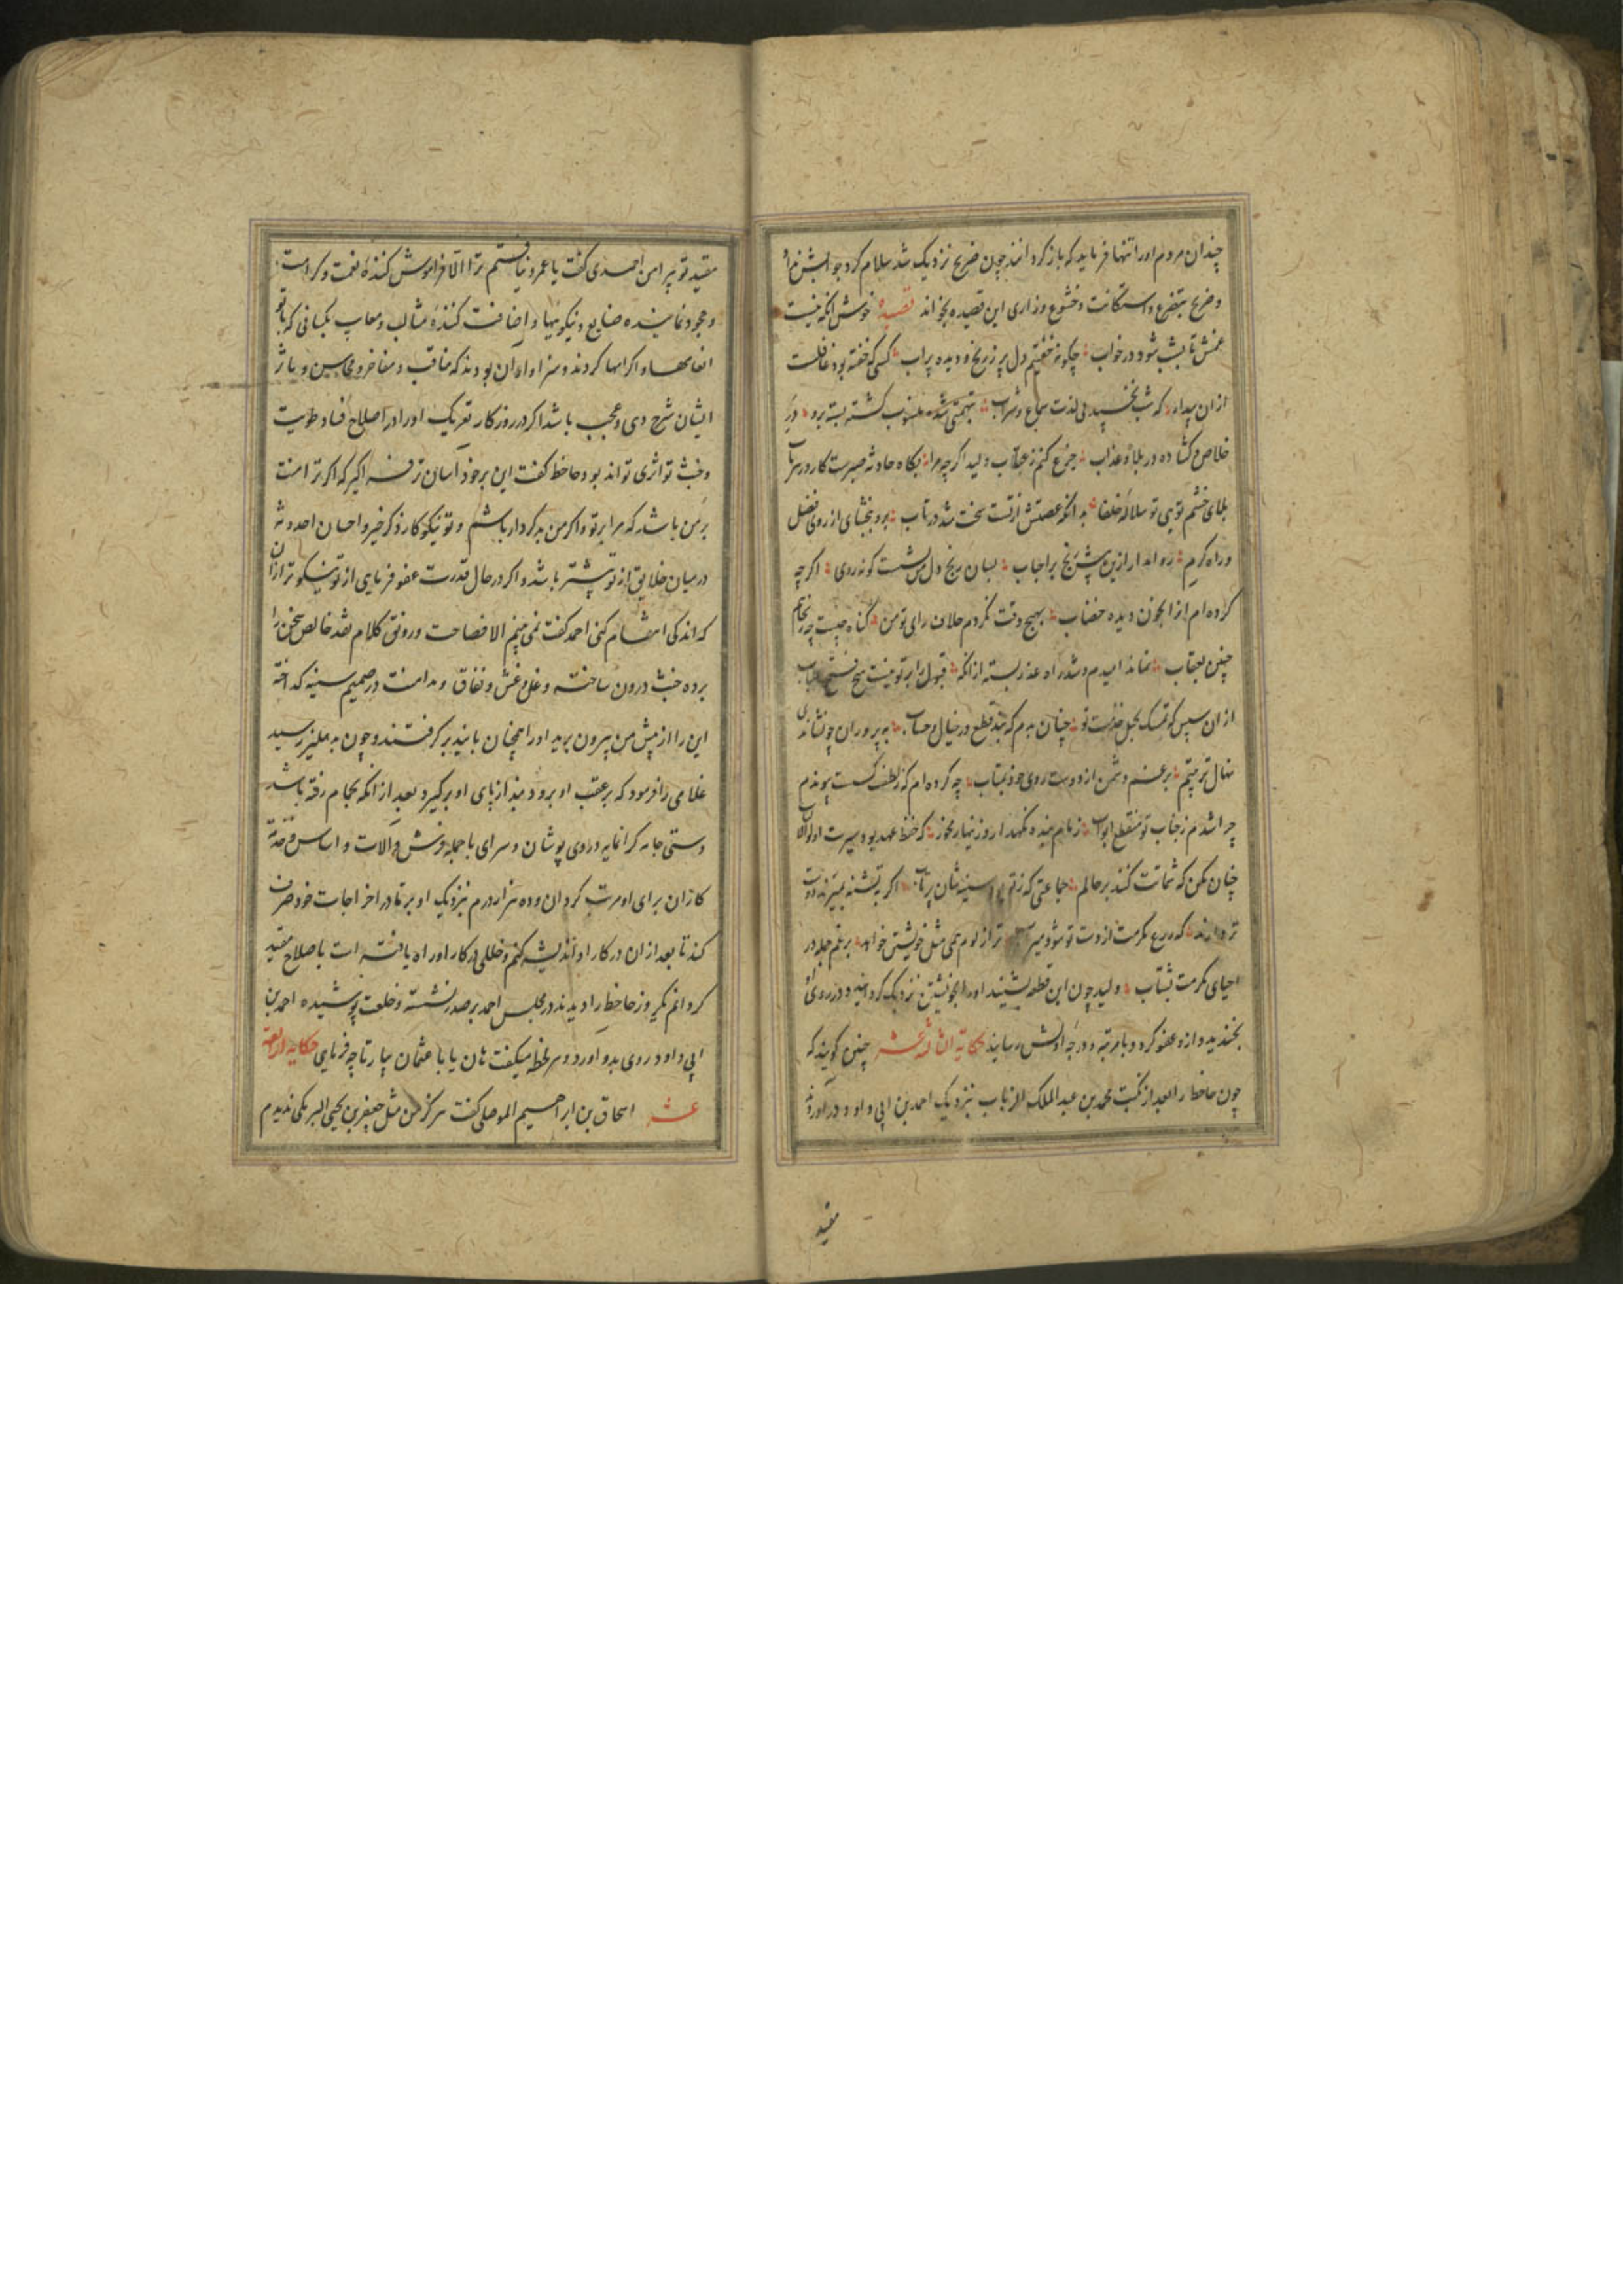 چندان مردم اورا تنها فرمایید که باز کردانند چون ضریح نزدیک شد سلام کرد جوابش نداد
و ضریح بتضرع و استکانت و خشوع و زاری این قصیده بخواند قصیده خوش انکه نیست
غمش تا بشب شود در خواب چکونه خفتیم دل پر ز رنج و دیده پر اب کسی که خفته بود غافلست
از ان بیدار که شب نخسپید بی لذت سماع و شراب بتهمتی شده منسوب کشته بسته برو در
خلاص و کشاده در بلا و عذاب جزع کنم ز عتاب ولید اکر چه مرا بکاه حادثه صبرست کار در هر باب
بلای خشم تویی تو سلاله خلفا بدانکه عصمتش از تست سخت شد در تاب برو ببخشای از روی فضل
و راه کرم ره اندار ازین پیش رنج بر احباب بسان رنج دل پشت کونه روی اکر چه
کرده ام از خون دیده خضاب بهیچ وقت نکردم خلاف رای تو من کناه چیست چه رنجانیم
چنین بعقاب نماند امیدم و شد راه عذر بسته از انکه قبول را بر تو نیست هیچ فتح الباب
از ان سپس که تمسک بحبل خدمت تو چنان بدم که نبد قطع در خیال و حساب به پروران چو نشاندی
نهال تربیتم برغم دشمن از دوست روی خود بمتاب چه کرده ام که ز لطف کسست پیوندم
چرا شدم ز جناب تو منقطع ابواب زمام بنده نکهدار و زینهار مخور که حفظ عهد بود سیرت اولوالالباب
چنان مکن که شماتت کنند بر حالم جماعتی که ز تو سینه شان پرتاب اکر بتشنه بمیرند دوست
تر دارند که زرع مکرمت از دست تو شود سیراب تر از لوم همی مثل خویشتن خواهند برغم جمله در
احیای مکرمت بشتاب ولید چون این قطعه بشنید اورا بخویشتن نزدیک کردانید و در روی او
بخندید و ازو عفو کرد و با مرتبه و درجه اولش رسانید حکایة الثالثة عشر چنین کویند که
چون جاحظ را بعد از نکبت محمد بن عبد الملک الزیات بنزدیک احمد بن ابی داود در اوردند
مقید
مقید تو پیراهن احمدی کفت یا عمرو نیافتم ترا الا فراموش کننده نعمت و کرامت
و مجود نماینده صنایع و نیکویها و اضافت کننده مثالب و معایب بکسانی که با تو
انعامها و اکرامها کردند و سزاوار ان بودند که مناقب و مفاخر و محاسن و ماثر
ایشان شرح دهی و عجب باشد اکر در روزکار تعریک اورا در اصلاح فساد طویت
و خبث تو اثری تواند بود جاحظ کفت این بر خود اسان تر فرا کیر که اکر ترا منت
بر من باشد که مرا بر تو و اکر من بدکردار باشم و تو نیکوکار ذکر خیر و احسان احدوثه
در میان خلایق از تو بیشتر باشد و اکر در حال قدرت عفو فرمایی از تو نیکوتر از ان
که اندکی انتقام کنی احمد کفت نمی بینم الا فصاحت و رونق کلام نقد خالص سخن را
برده خبث درون ساخته و غل و غش و نفاق و مداهنت در صمیم سینه کداخته
این را از پیش من بیرون برید اورا همچنان با بند بر کرفتند و چون بدهلیز رسید
غلامی را فرمود که بر عقب او برود بند از پای او برکیرد بعد از انکه بحمام رفته باشد
دستی جامه کرانمایه در وی پوشان و سرای با جمله فرش و الات و اساس و خدمة
کاران برای او مرتب کردان و ده هزار درم بنزدیک او بر تا در اخراجات خود صرف
کند تا بعد از ان در کار او اندیشه کنم و خللی در کار او راه یافته است باصلاح مقید
کردانم دیکر روز جاحظ را دیدند در مجلس احمد بر صدر نشسته و خلعت پوشیده احمد بن
ابی داود روی بدو اورد و هر لحظه میکفت هان یا با عثمان بیار تا چه فرمایی حکایة الرابعة
عشر اسحاق بن ابراهیم الموصلی کفت هرکز من مثل جعفر بن یحیی البرمکی ندیدم